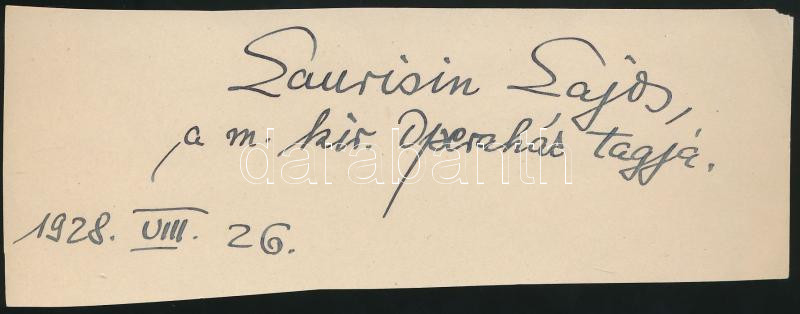 Laurisin Lajos,
a m. kir. Operaház tagja.
darabanth
1928. VIII. 26.